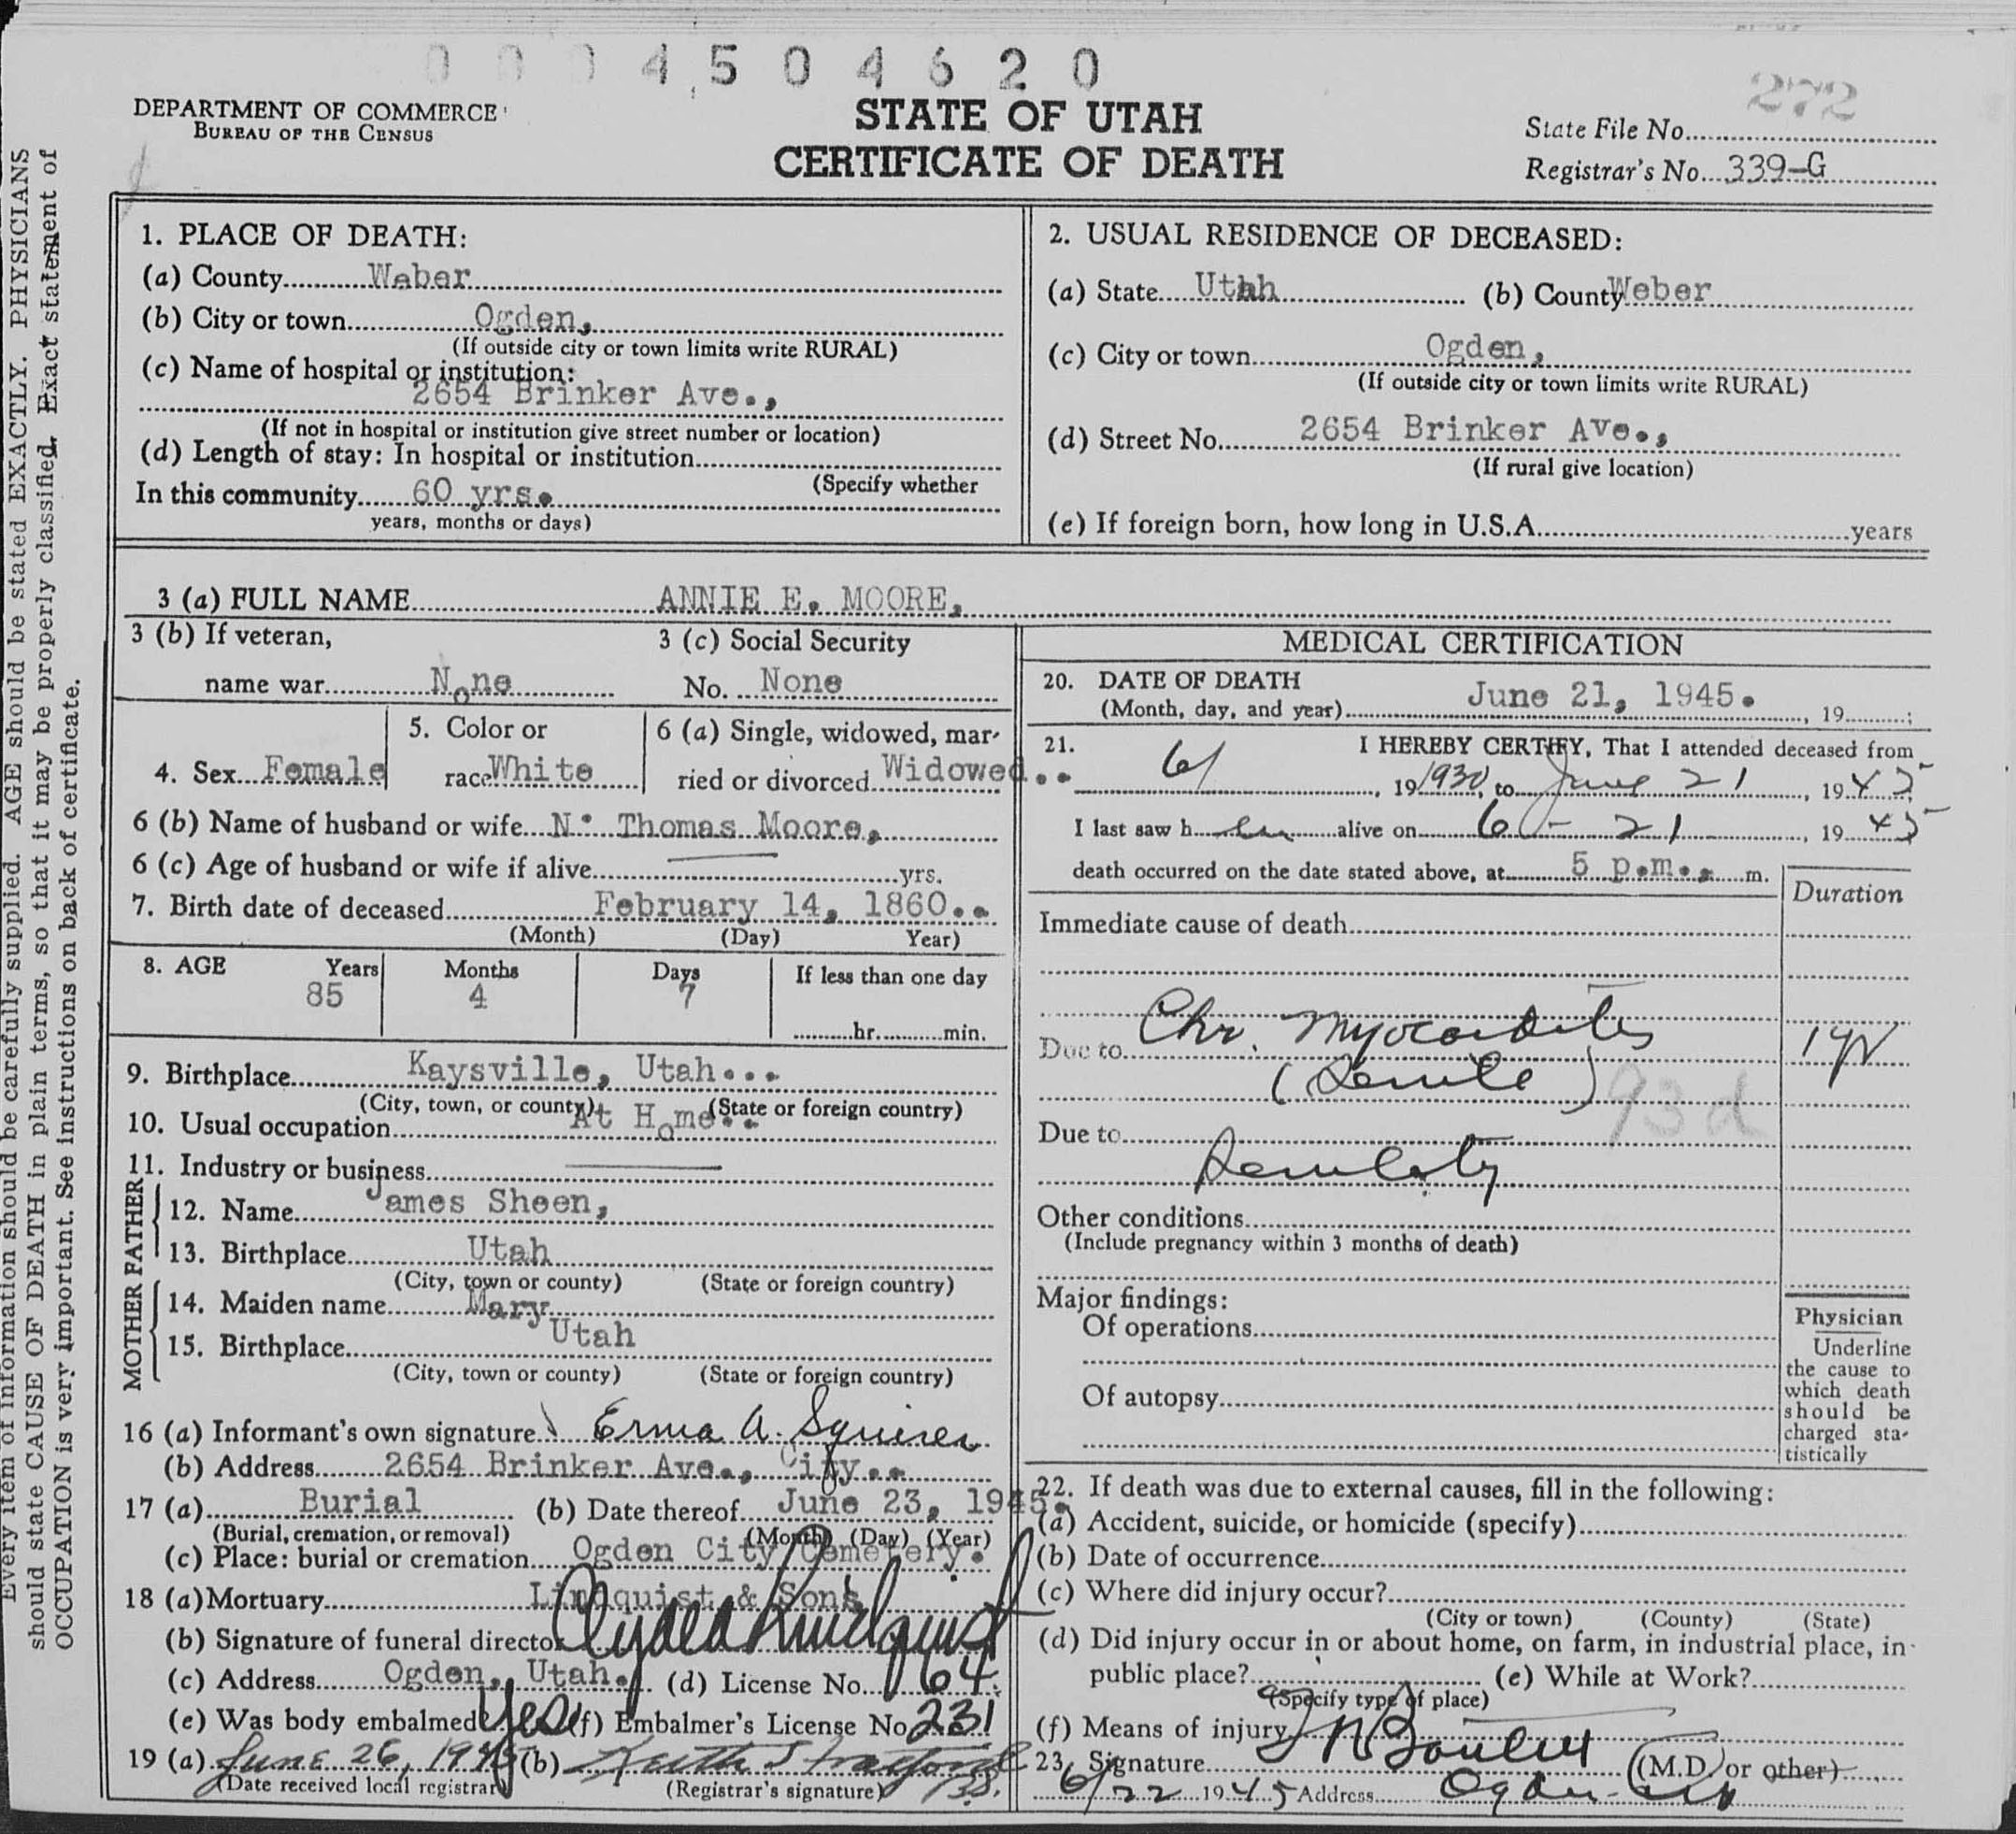 0004504620
272
DEPARTMENT OF COMMERCE
BUREAU OF THE CENSUS
STATE OF UTAH
CERTIFICATE OF DEATH
State File No.
Registrar's No. 339-G
Every item of information should be carefully supplied. AGE should be stated EXACTLY. PHYSICIANS
should state CAUSE OF DEATH in plain terms, so that it may be properly classified. Exact statement of
OCCUPATION is very important. See instructions on back of certificate.
1. PLACE OF DEATH:
(a) County Weber
(b) City or town Ogden,
(If outside city or town limits write RURAL)
(c) Name of hospital or institution:
2654 Brinker Ave.,
(If not in hospital or institution give street number or location)
(d) Length of stay: In hospital or institution
(Specify whether
In this community 60 yrs.
years, months or days)
2. USUAL RESIDENCE OF DECEASED:
(a) State Utah (b) County Weber
(c) City or town Ogden,
(If outside city or town limits write RURAL)
(d) Street No. 2654 Brinker Ave.,
(If rural give location)
(e) If foreign born, how long in U.S.A. years
3 (a) FULL NAME ANNIE E. MOORE,
3 (b) If veteran, 3 (c) Social Security
name war None No. None
4. Sex Female 5. Color or race White 6 (a) Single, widowed, married or divorced Widowed..
6 (b) Name of husband or wife N. Thomas Moore,
6 (c) Age of husband or wife if alive yrs.
7. Birth date of deceased February 14, 1860..
(Month) (Day) Year)
8. AGE Years Months Days If less than one day
85 4 7 hr. min.
9. Birthplace Kaysville, Utah...
(City, town, or county) (State or foreign country)
10. Usual occupation At Home..
11. Industry or business
FATHER
12. Name James Sheen,
13. Birthplace Utah
(City, town or county) (State or foreign country)
MOTHER
14. Maiden name Mary
15. Birthplace Utah
(City, town or county) (State or foreign country)
16 (a) Informant's own signature Erma A. Squires
(b) Address 2654 Brinker Ave., City..
17 (a) Burial (b) Date thereof June 23, 1945.
(Burial, cremation, or removal) (Month) (Day) (Year)
(c) Place: burial or cremation Ogden City Cemetery.
18 (a) Mortuary Lindquist & Sons
(b) Signature of funeral director Lindquist
(c) Address Ogden, Utah. (d) License No. 64
(e) Was body embalmed Yes (f) Embalmer's License No. 231
19 (a) June 26, 1945 (b) Keith
(Date received local registrar) (Registrar's signature)
MEDICAL CERTIFICATION
20. DATE OF DEATH
(Month, day, and year) June 21, 1945. , 19 ;
21. I HEREBY CERTIFY, That I attended deceased from
6/ , 19 1930, to June 21 , 19 45;
I last saw h er alive on 6 - 21 , 19 45
death occurred on the date stated above, at 5 p.m., m.
Duration
Immediate cause of death
Due to Chr. Myocarditis 1 yr
(Senile) 93d
Due to
Senility
Other conditions
(Include pregnancy within 3 months of death)
Major findings:
Of operations
Of autopsy
Physician
Underline
the cause to
which death
should be
charged sta-
tistically
22. If death was due to external causes, fill in the following:
(a) Accident, suicide, or homicide (specify)
(b) Date of occurrence
(c) Where did injury occur?
(City or town) (County) (State)
(d) Did injury occur in or about home, on farm, in industrial place, in
public place? (e) While at Work?
(Specify type of place)
(f) Means of injury
23. Signature (M.D. or other)
6/22 1945 Address Ogden